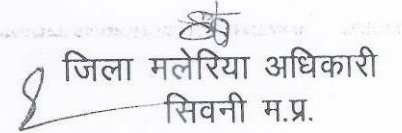 जिला मलेरिया अधिकारी
सिवनी म.प्र.